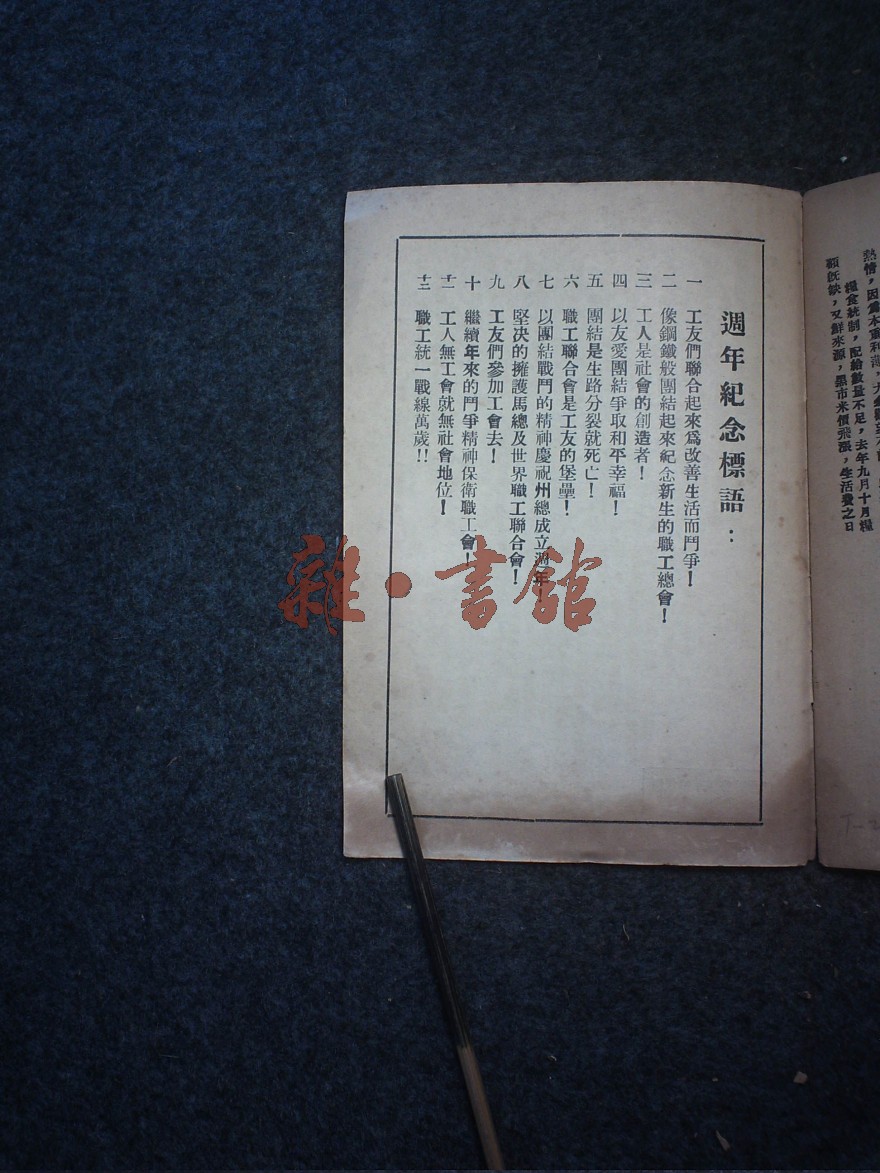 熱情，因爲本重利薄，
頗旣缺，又鮮來源，黑市米價飛漲，生活費之日
糧食統制，配給數量不足，去年九月十月糧
週年紀念標語：
一 工友們聯合起來爲改善生活而鬥爭！
二 像鋼鐵般團結起來紀念新生的職工總會！
三 工人是社會的創造者！
四 以友愛團結爭取和平幸福！
五 團結是生路分裂就死亡！
六 職工聯合會是工友的堡壘！
七 以團結戰鬥的精神慶祝州總成立週年！
八 堅決的擁護馬總及世界職工聯合會！
九 工友們參加工會去！
十 繼續年來的鬥爭精神保衛職工會！
十一 工人無工會就無社會地位！
十二 職工統一戰線萬歲！！
雜·書館